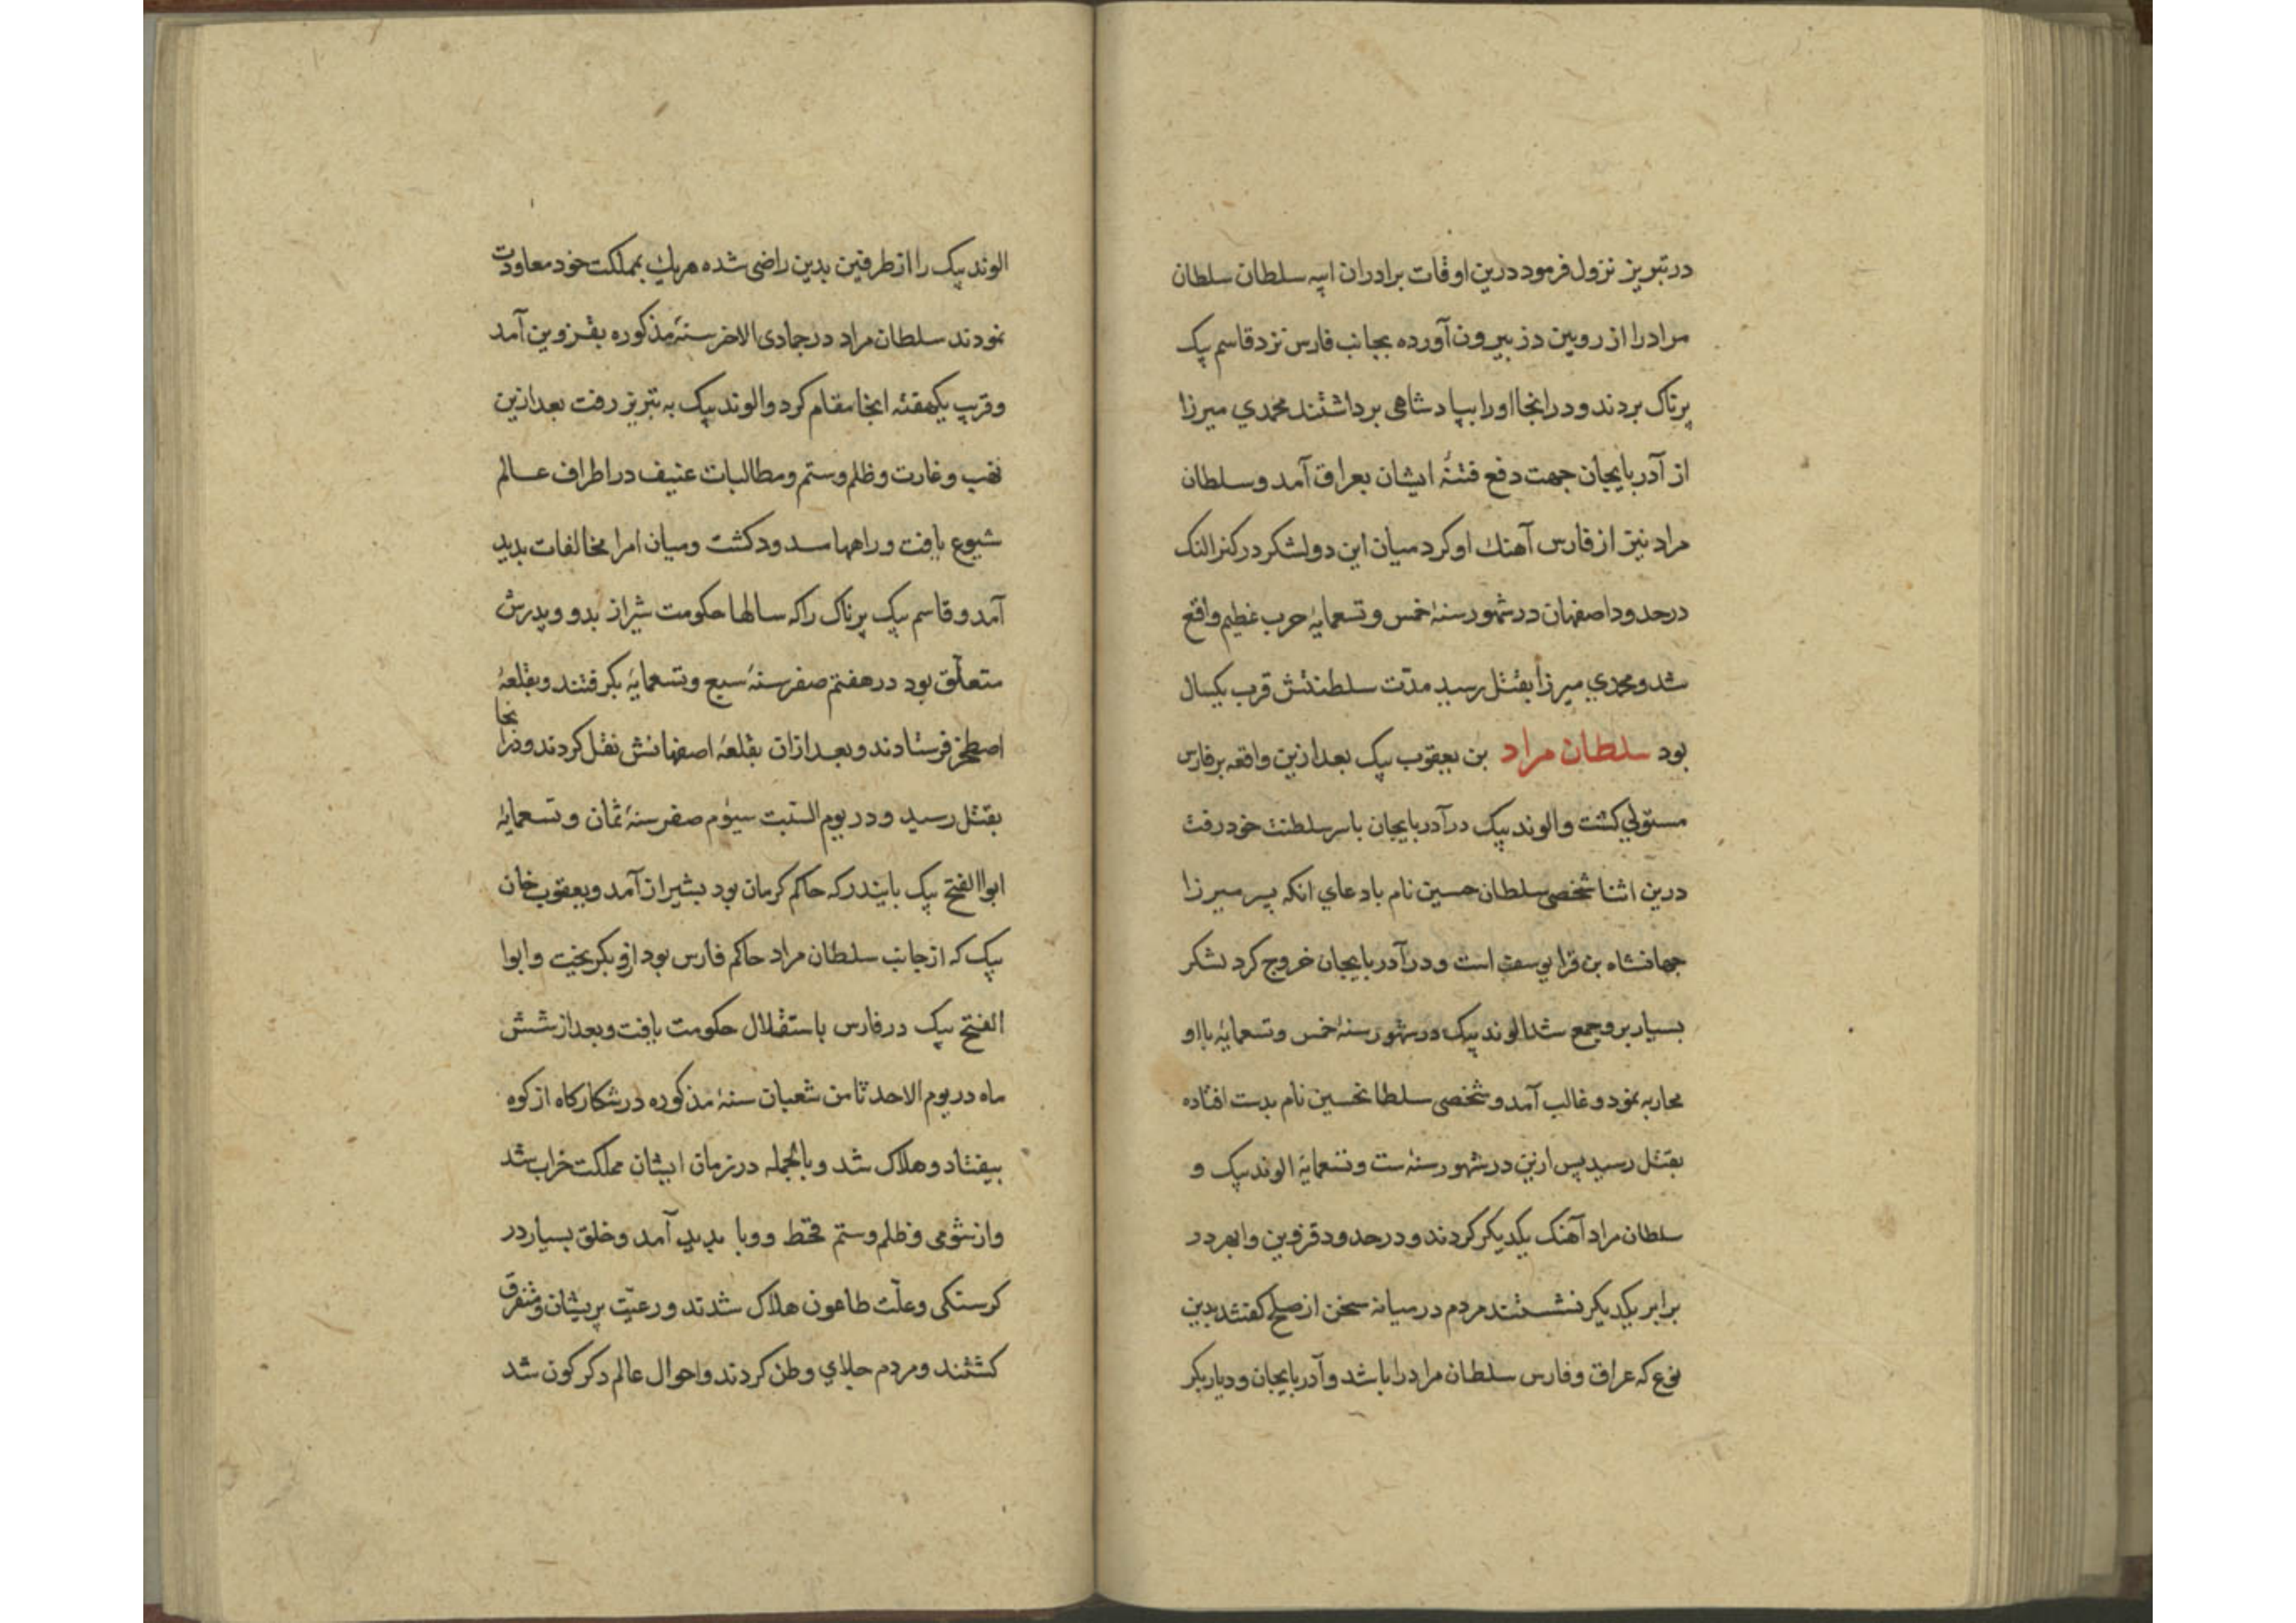 در تبریز نزول فرمود درین اوقات برادران ایبه سلطان سلطان
مراد را از روبین دز بیرون آورده بجانب فارس نزد قاسم بیک
پرناک بردند و در انجا اورا بپادشاهی برداشتند محمدي میرزا
از آذربایجان جهت دفع فتنهٔ ایشان بعراق آمد و سلطان
مراد نیز از فارس آهنك او کرد میان این دو لشکر در کنر النک
در حدود اصفهان در شهور سنهٔ خمس و تسعمایهٔ حرب عظیم واقع
شد و محمدي میرزا بقتل رسید مدّت سلطنتش قرب یکسال
بود سلطان مراد بن یعقوب بیک بعد ازین واقعه بر فارس
مستولي کشت و الوند بیک در آذربایجان باسر سلطنت خود رفت
درین اثنا شخصی سلطان حسین نام بادعاي انکه پسر میرزا
جهانشاه بن قرا یوسف است و در آذربایجان خروج کرد لشکر
بسیار برو جمع شد الوند بیک در شهور سنهٔ خمس و تسعمایهٔ با او
محاربه نمود و غالب آمد و شخصی سلطانحسین نام بدست افتاده
بقتل رسید پس ازین در شهور سنهٔ ست و تسعمایهٔ الوند بیک و
سلطان مراد آهنک یکدیکر کردند و در حدود قزوین و ابهر در
برابر یکدیکر نشستند مردم در میانه سخن از صلح کفتند بدین
نوع که عراق و فارس سلطان مراد را باشد و آذربایجان و دیاربکر
الوند بیک را از طرفین بدین راضی شده هریك بمملکت خود معاودت
نمودند سلطان مراد در جمادی الاخر سنهٔ مذکوره بقزوین آمد
و قریب یکهفته انجا مقام کرد و الوند بیک به تبریز رفت بعد ازین
نهب و غارت و ظلم و ستم و مطالبات عنیف در اطراف عالم
شیوع یافت و راهها مسدود کشت و میان امرا مخالفات بدید
آمد و قاسم بیک پرناک را که سالها حکومت شیراز بدو و پدرش
متعلّق بود در هفتم صفر سنهٔ سبع و تسعمایهٔ بکرفتند و بقلعهٔ
اصطخر فرستادند و بعد ازان بقلعهٔ اصفهانش نقل کردند و درانجا
بقتل رسید و در یوم السّبت سیوم صفر سنهٔ ثمان و تسعمایهٔ
ابوا الفتح بیک بایندر که حاکم کرمان بود بشیراز آمد و یعقوب خان
بیک که از جانب سلطان مراد حاکم فارس بود ازو بکریخت و ابوا
الفتح بیک در فارس باستقلال حکومت یافت و بعد از شش
ماه در یوم الاحد ثامن شعبان سنهٔ مذکوره در شکارکاه از کوه
بیفتاد و هلاک شد و بالجمله در زمان ایشان مملکت خراب شد
و از شومی و ظلم و ستم قحط و وبا بدید آمد و خلق بسیار در
کرسنکی و علّت طاعون هلاک شدند و رعیّت پریشان و متفرق
کشتند و مردم جلاي وطن کردند و احوال عالم دکرکون شد